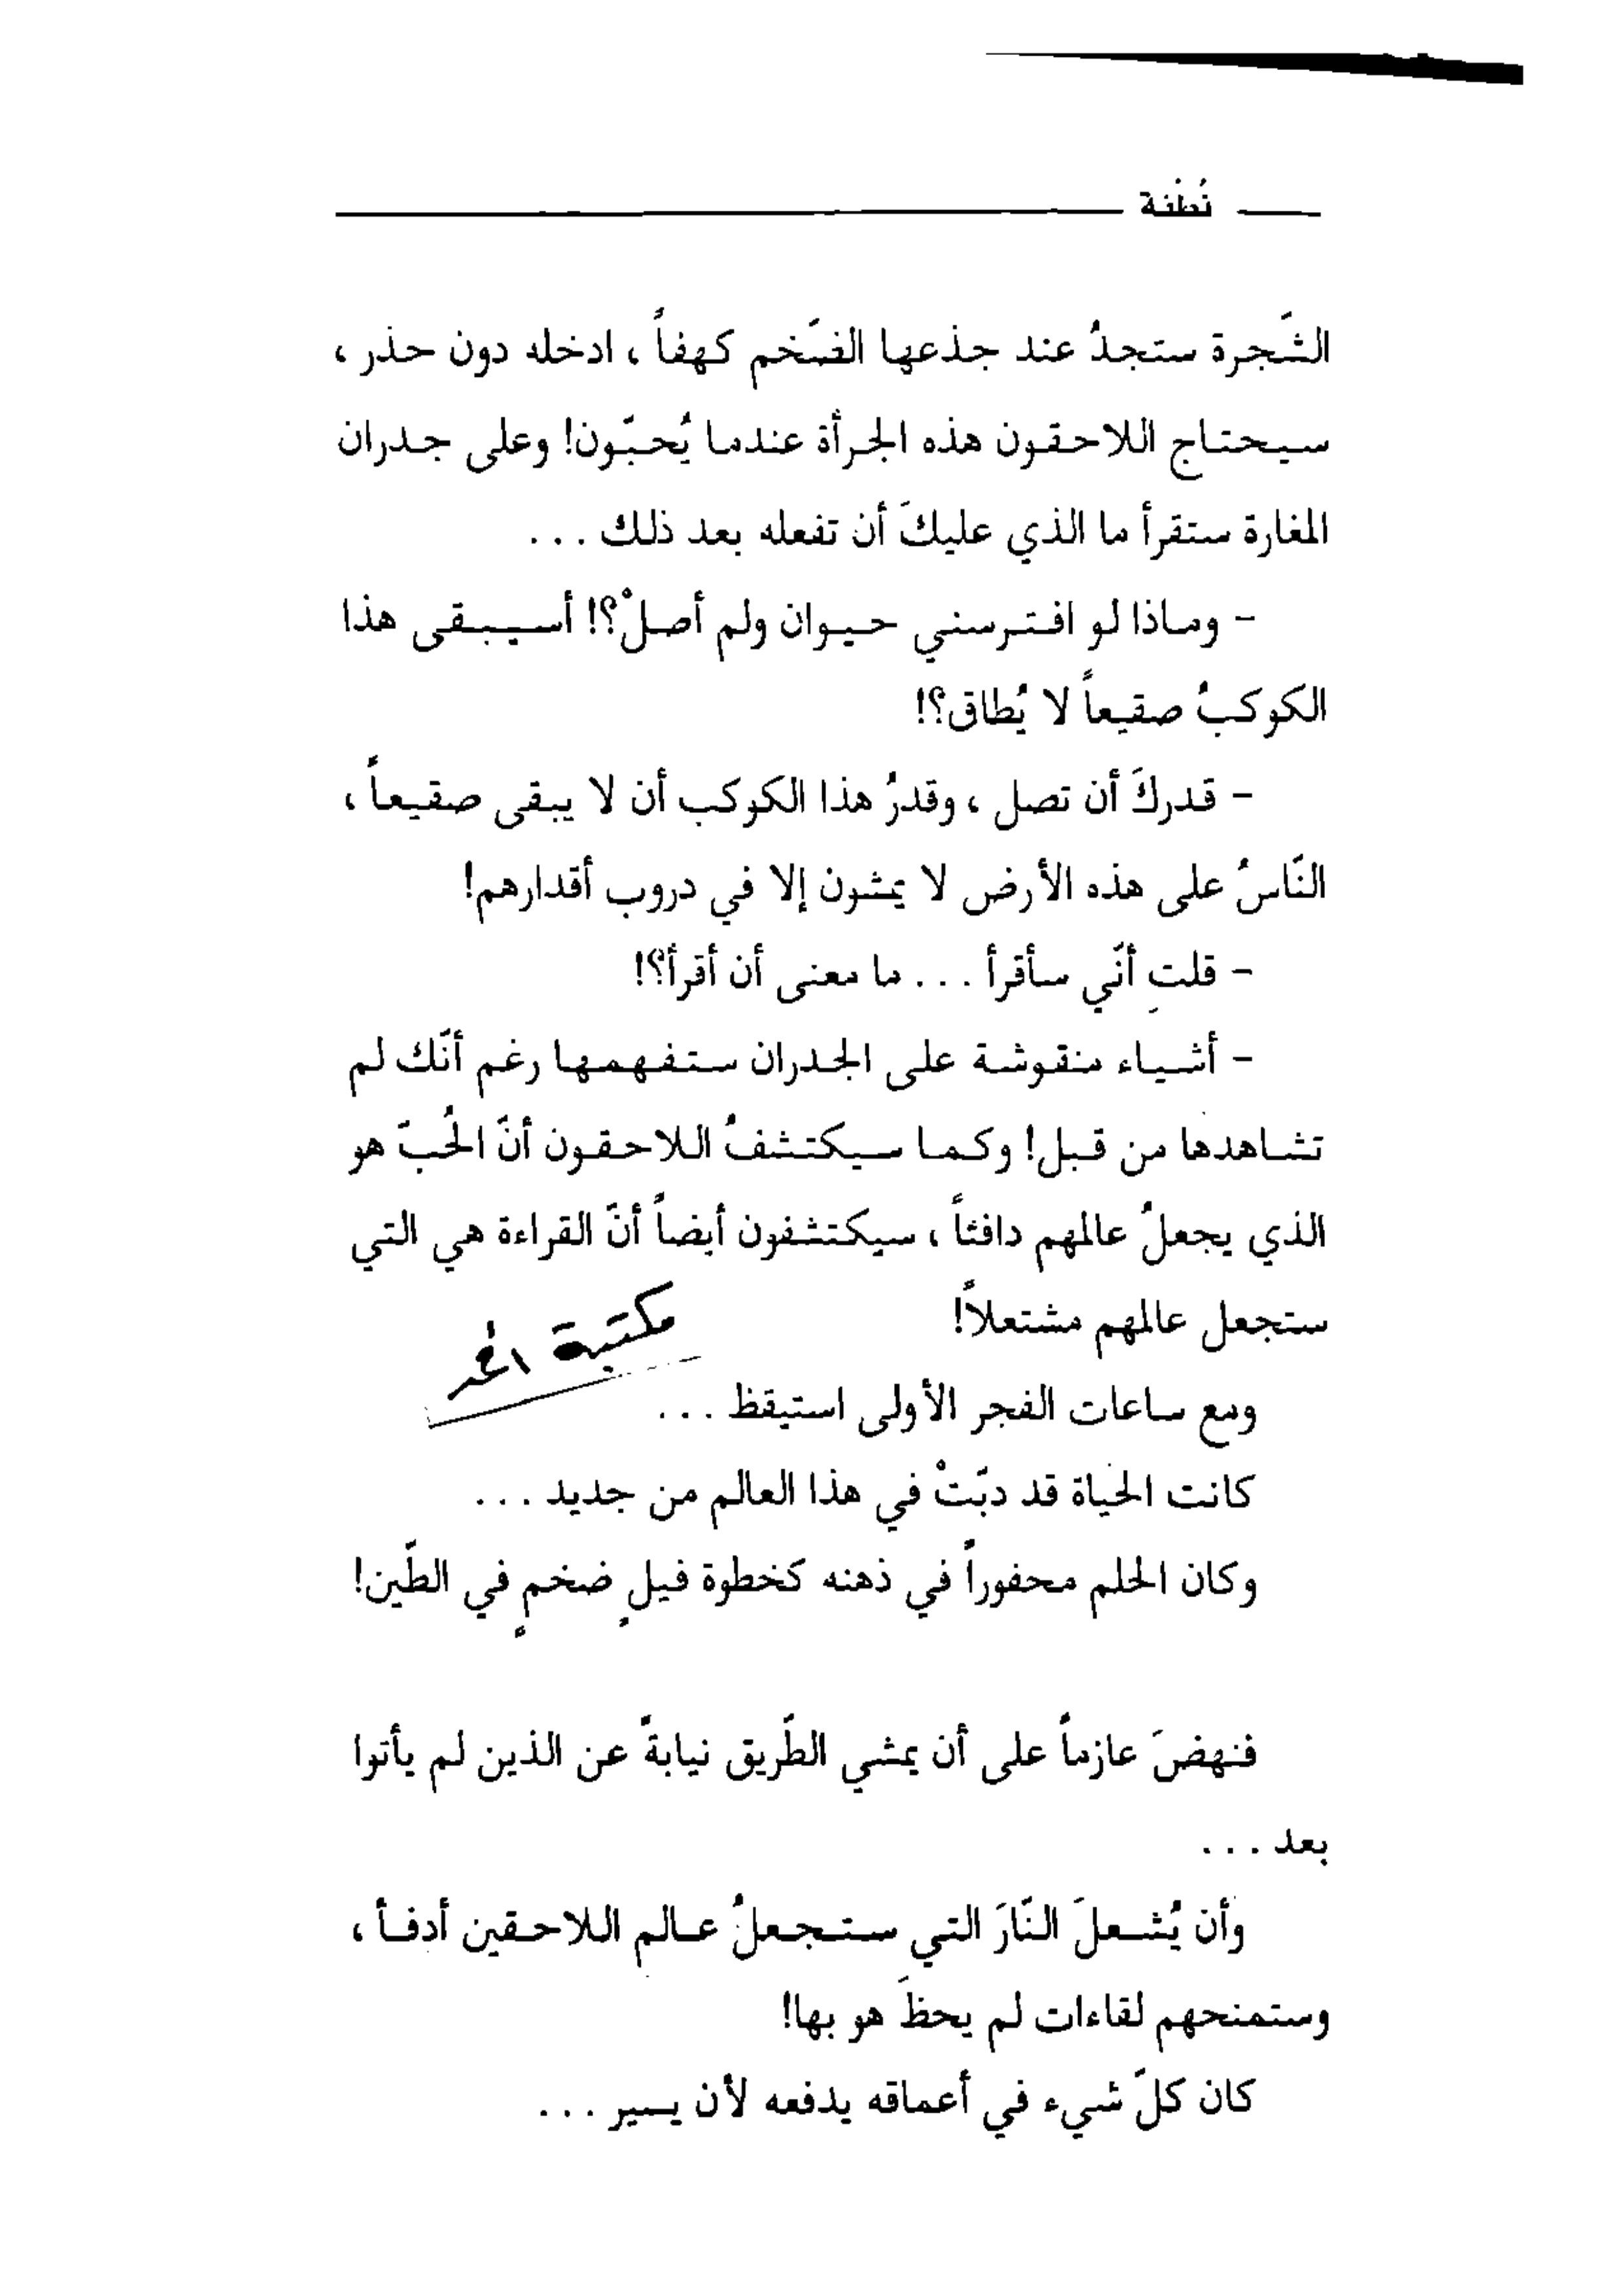 نُطْفة
الشَّجرة ستجدُ عند جذعها الضَخم كهفاً، ادخله دون حذر،
سيحتاج اللاحقون هذه الجرأة عندما يُحبّون! وعلى جدران
المغارة ستقرأ ما الذي عليكَ أن تفعله بعد ذلك ...
- وماذا لو افترسني حيوان ولم أصلْ؟! أسيبقى هذا
الكوكبُ صقيعاً لا يُطاق؟!
- قدركَ أن تصل، وقدرُ هذا الكوكب أن لا يبقى صقيعاً،
النّاسُ على هذه الأرض لا يمشون إلا في دروب أقدارهم!
- قلتِ أنّي سأقرأ ... ما معنى أن أقرأ؟!
- أشياء منقوشة على الجدران ستفهمها رغم أنّك لم
تشاهدها من قبل! وكما سيكتشفُ اللاحقون أنّ الحُبّ هو
الذي يجعلُ عالمهم دافئاً، سيكتشفون أيضاً أنّ القراءة هي التي
ستجعل عالمهم مشتعلاً!
مكتبة
ومع ساعات الفجر الأولى استيقظ ...
كانت الحياة قد دبّتْ في هذا العالم من جديد ...
وكان الحلم محفوراً في ذهنه كخطوة فيلٍ ضخمٍ في الطّين!
فنهضَ عازماً على أن يمشي الطّريق نيابةً عن الذين لم يأتوا
بعد ...
وأن يُشعلَ النّارَ التي ستجعلُ عالم اللاحقين أدفأ،
وستمنحهم لقاءات لم يحظَ هو بها!
كان كلّ شيء في أعماقه يدفعه لأن يسير ...